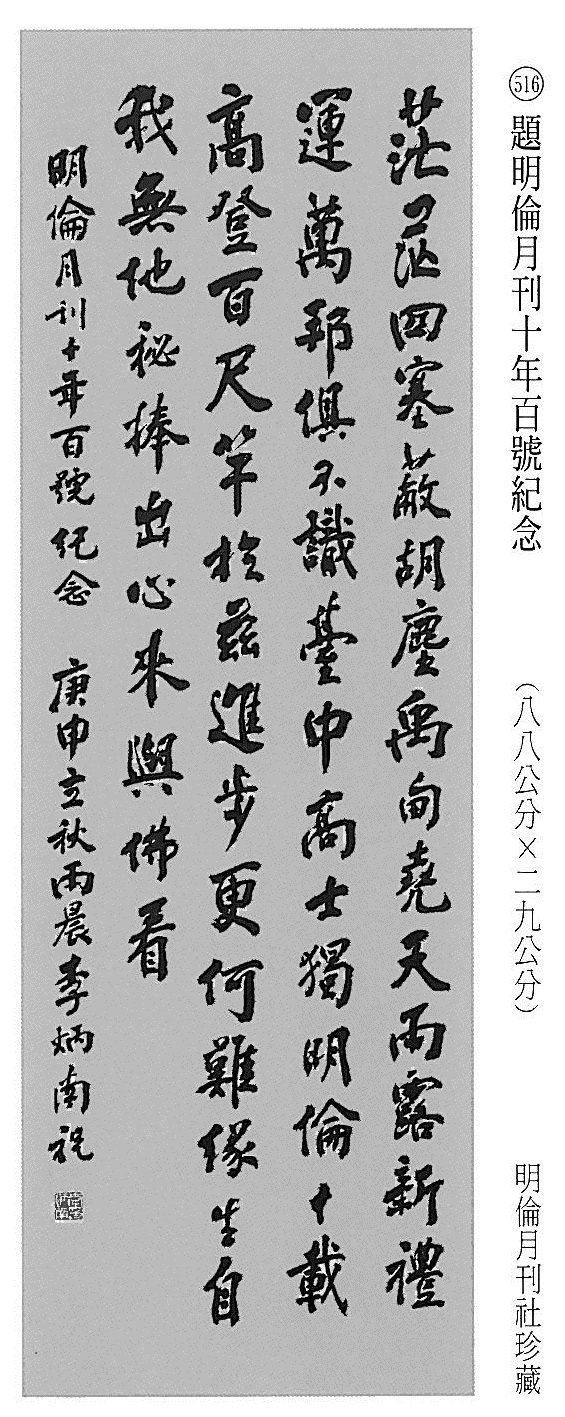 516 題明倫月刊十年百號紀念 （八八公分×二九公分） 明倫月刊社珍藏
茫茫四塞蔽胡塵禹甸堯天雨露新禮
運萬邦俱不識臺中高士獨明倫十載
高登百尺竿於茲進步更何難緣生自
我無他祕捧出心來與佛看
明倫月刊十年百號紀念 庚申立秋雨晨李炳南祝